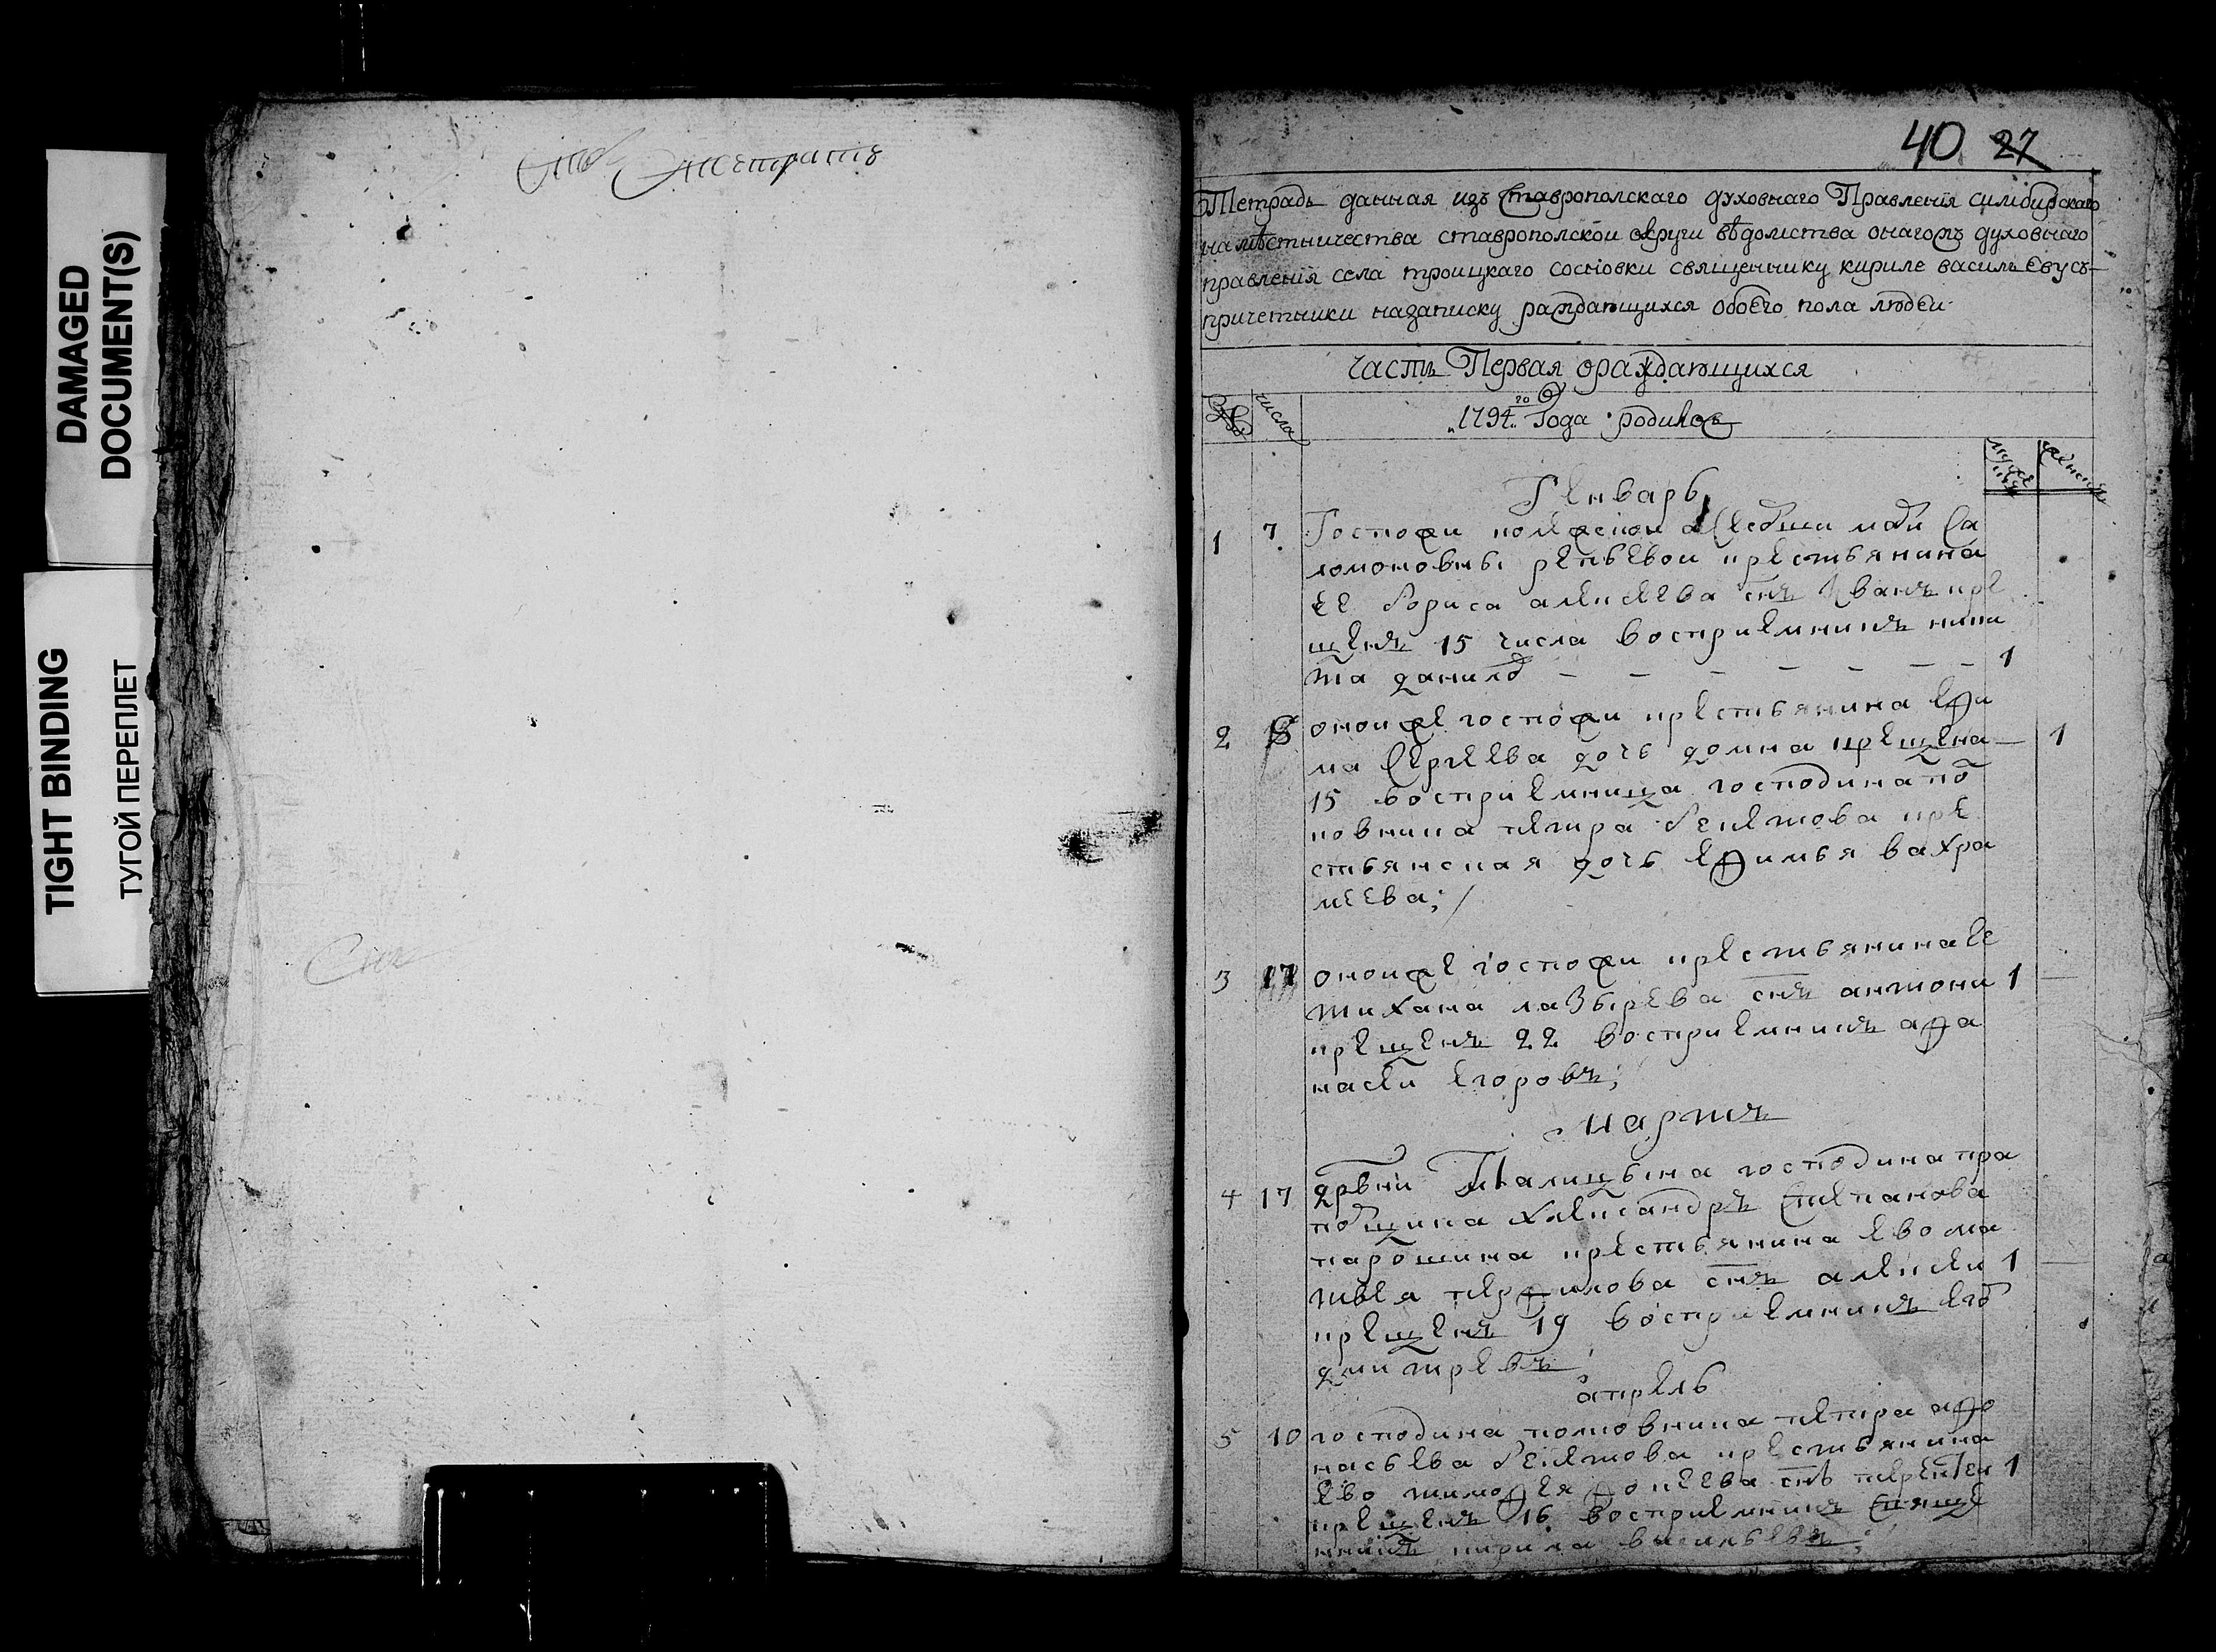 DAMAGED
DOCUMENT(S)
TIGHT BINDING
ТУГОЙ ПЕРЕПЛЕТ
40 27
Тетрадь данная изъ Ставрополскаго духовнаго Правленія симбирскаго
намѣстничества ставрополской округи вѣдомства онагожъ духовнаго
правленія села троицкаго сосновки священнику кириле васильеву съ
причетники назаписку раждающихся обоего пола людей
часть Первая ораждающихся
числа
1794го Года родилось
мужеска
женска
Генварь
1 7 Госпожи
ломоновны репьевои крестьянина
ее бориса алексеева снъ Иванъ кре
щенъ 15 числа восприемникъ ники
та данилов 1
2 8 оноиже госпожи крестьянина ефи
ма Сергеева дочь домна крещена 1
15 восприемница господина пол
ковника петра бекетова кре
стьянская дочь ефимья вахра
меева;
3 17 оноиже госпожи крестьянина ее
тихана лазырева снъ антони 1
крещенъ 22 восприемникъ афа
насеи егоровъ;
мартъ
4 17 дрвни Палицына господина пра
порщика Александръ Степанова
парошина крестьянина ево ма
твея перфилова снъ алексеи 1
крещенъ 19 восприемникъ его
дмитревъ
апрель
5 10 господина полковника петра афо
насьева бекетова крестьянина
ево тимофея фокеева снъ терентеи 1
крещенъ 16 восприемникъ Свяще
нникъ кирила васильевъ;